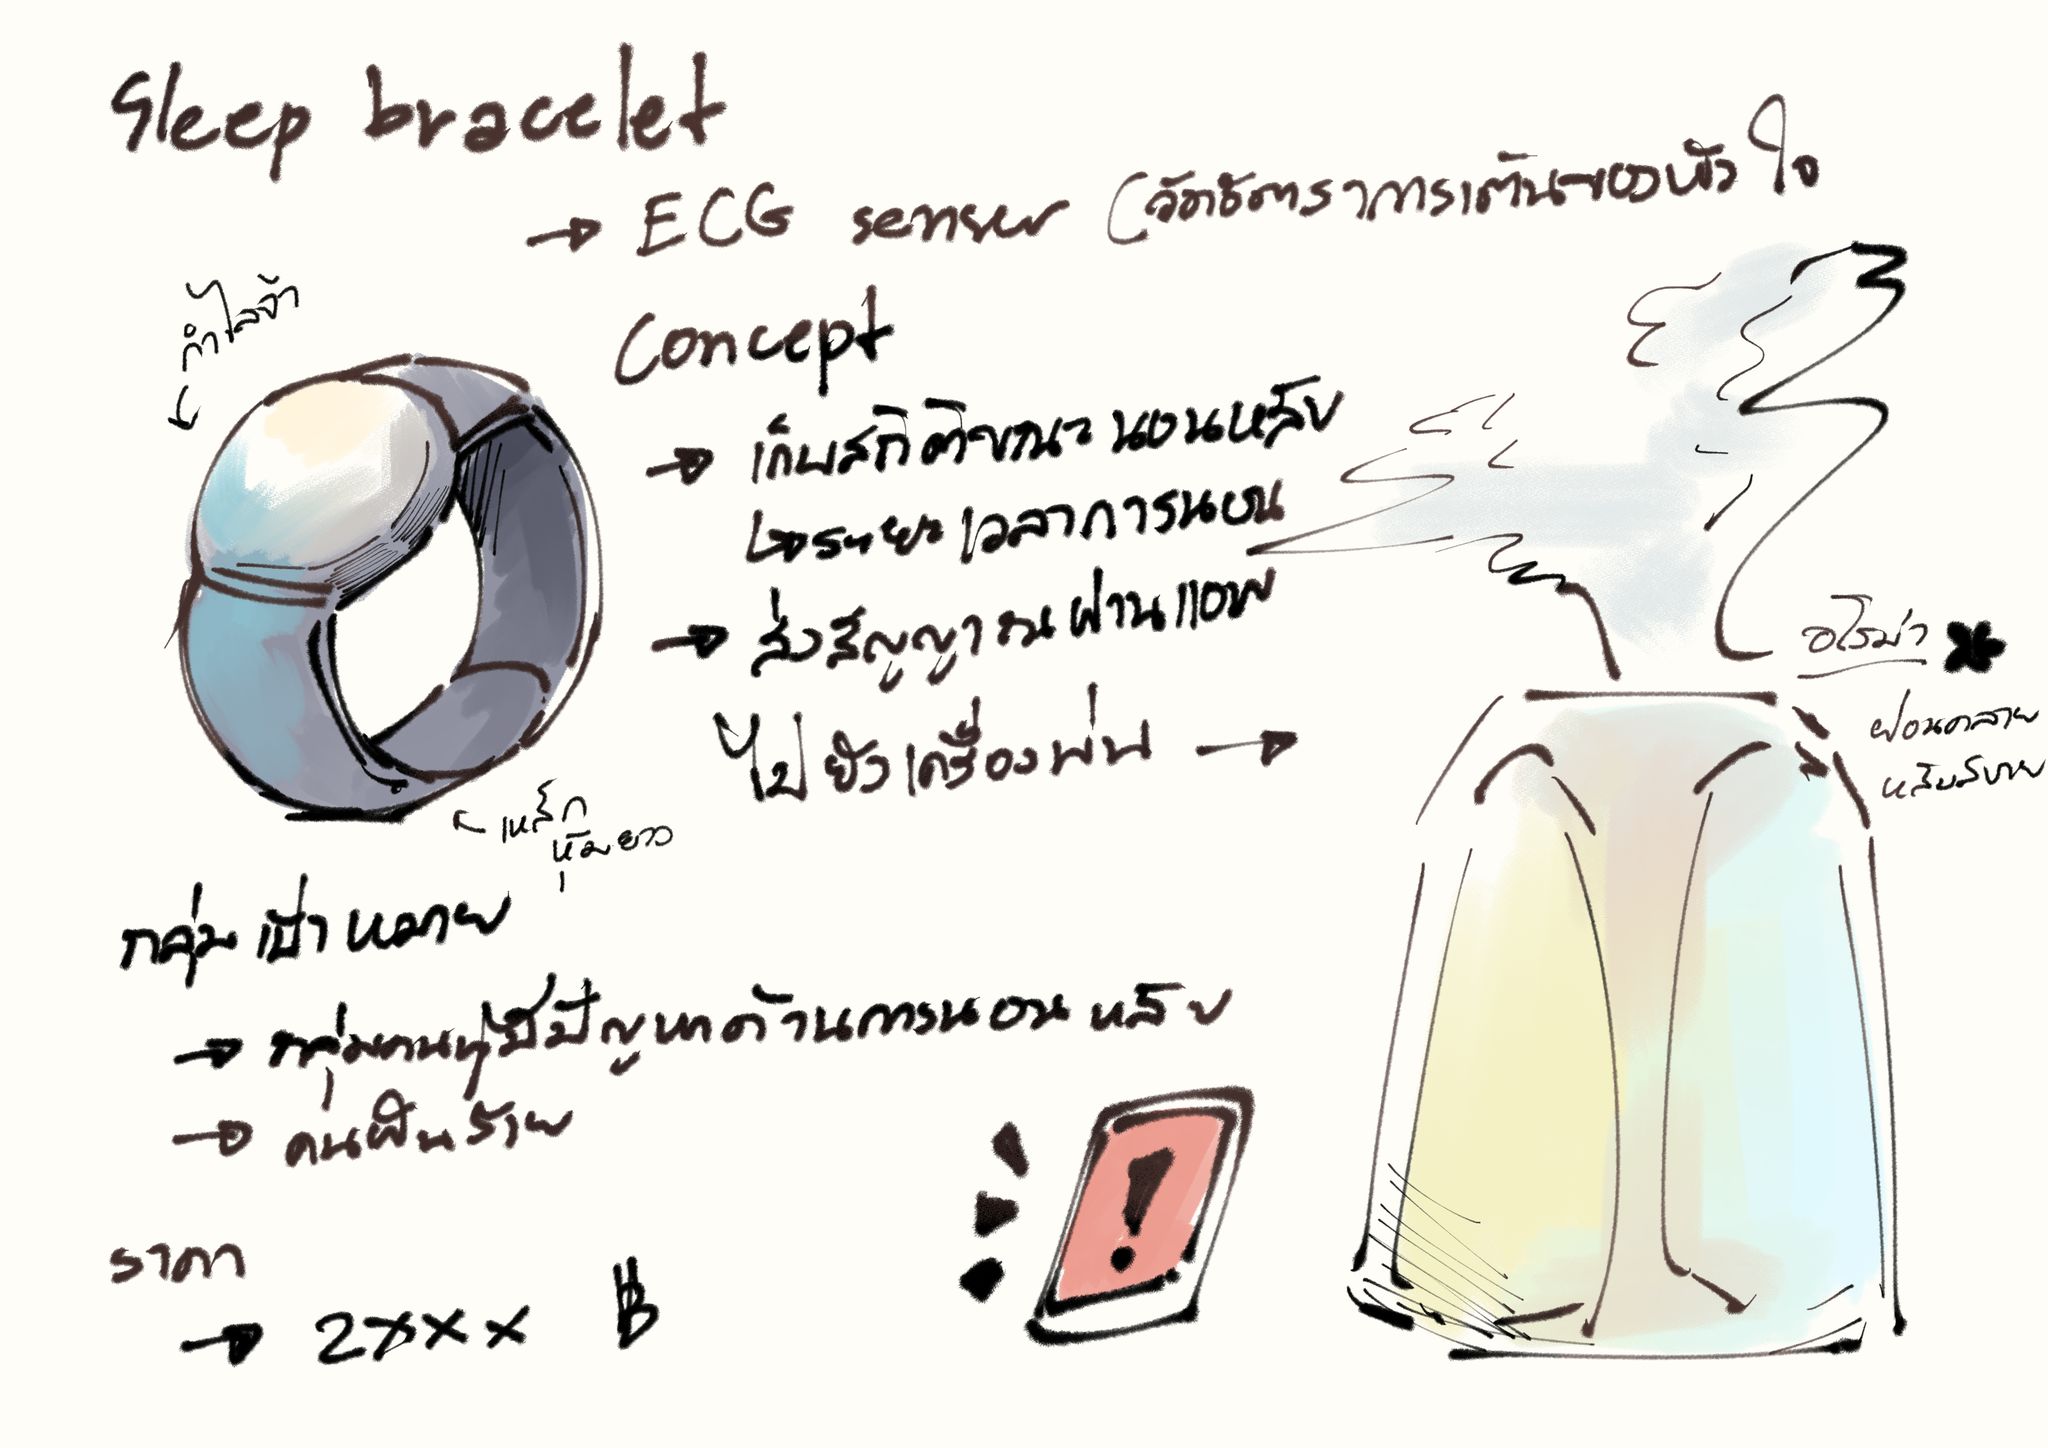 Sleep bracelet
→ ECG senser (วัดอัตราการเต้นของหัวใจ
กำไลข้า
Concept
→ เก็บสถิติขณะนอนหลับ
↳ ระยะเวลาการนอน
→ ส่งสัญญาณผ่านแอพ
ไปยังเครื่องพ่น →
อโรม่า
ผ่อนคลาย
หลับสบาย
เหล็ก
หุ้มยาง
กลุ่มเป้าหมาย
→ กลุ่มคนที่มีปัญหาด้านการนอนหลับ
→ คนฝันร้าย
!
ราคา
→ 2xxx ฿